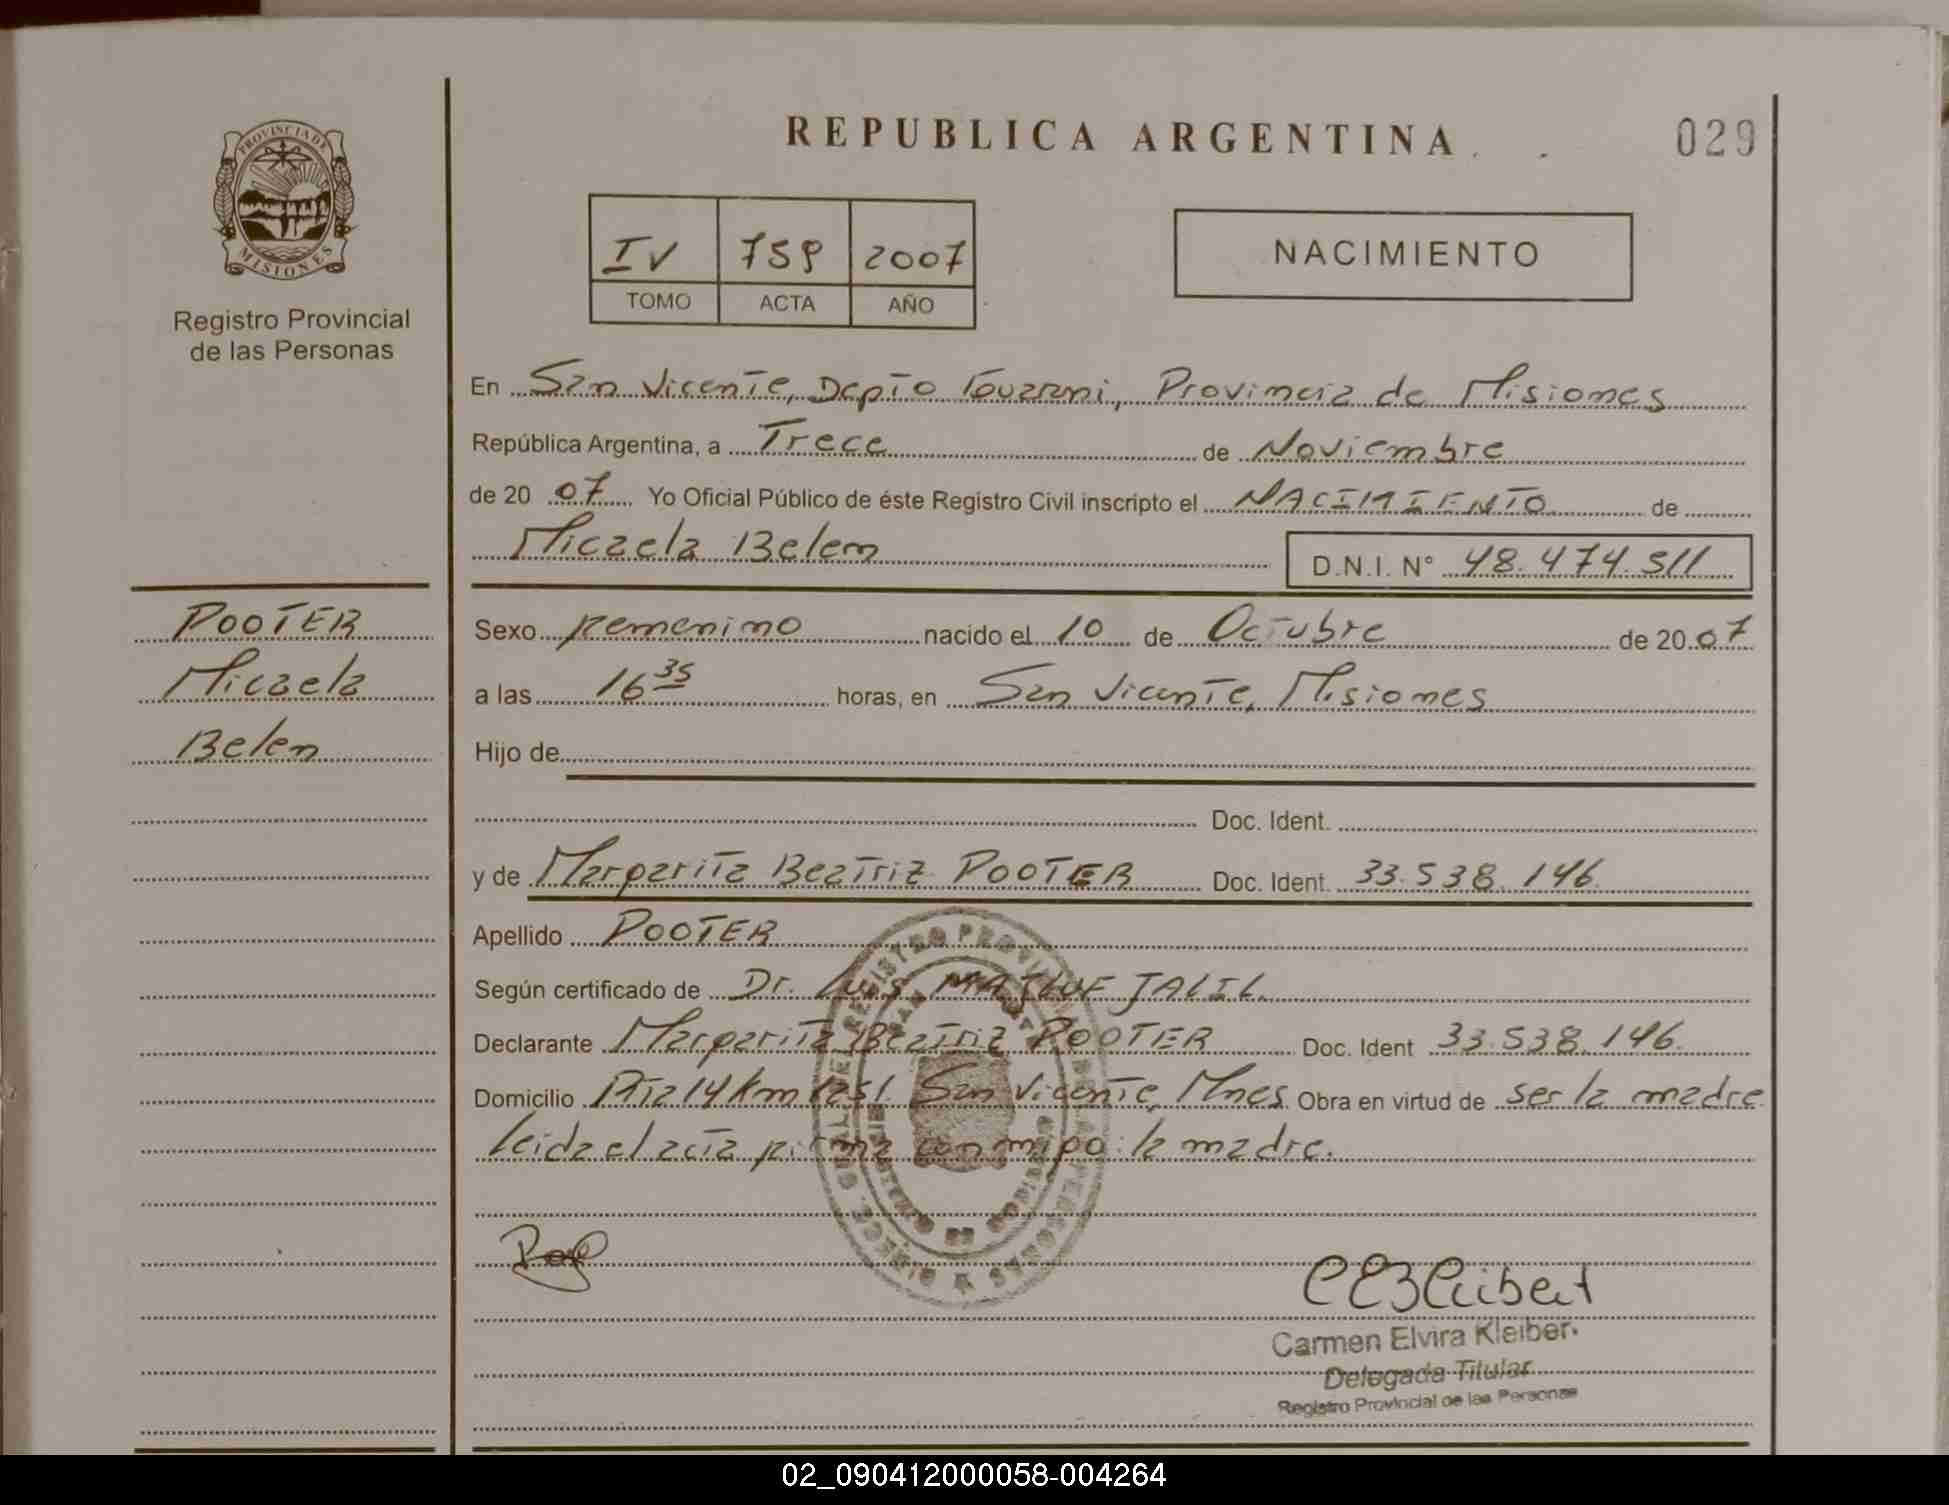 REPUBLICA ARGENTINA
029
PROVINCIA DE
MISIONES
Registro Provincial
de las Personas
IV 759 2007
TOMO ACTA AÑO
NACIMIENTO
En San Vicente, Depto Guarani, Provincia de Misiones
República Argentina, a Trece de Noviembre
de 20 07 Yo Oficial Público de éste Registro Civil inscripto el NACIMIENTO de
Micaela Belen D.N.I. N° 48.474.511
POOTER
Micaela
Belen
Sexo Femenino nacido el 10 de Octubre de 20 07
a las 16 35 horas, en San Vicente, Misiones
Hijo de
Doc. Ident.
y de Margarita Beatriz POOTER Doc. Ident. 33.538.146
Apellido POOTER
Según certificado de Dr. Luis MAJLUF JALIL
Declarante Margarita Beatriz POOTER Doc. Ident 33.538.146
Domicilio Rta 14 km 1251 San Vicente, Mnes Obra en virtud de ser la madre
Leida el acta firma conmigo: la madre.
Carmen Elvira Kleiber
Delegada Titular
Registro Provincial de las Personas
02_090412000058-004264